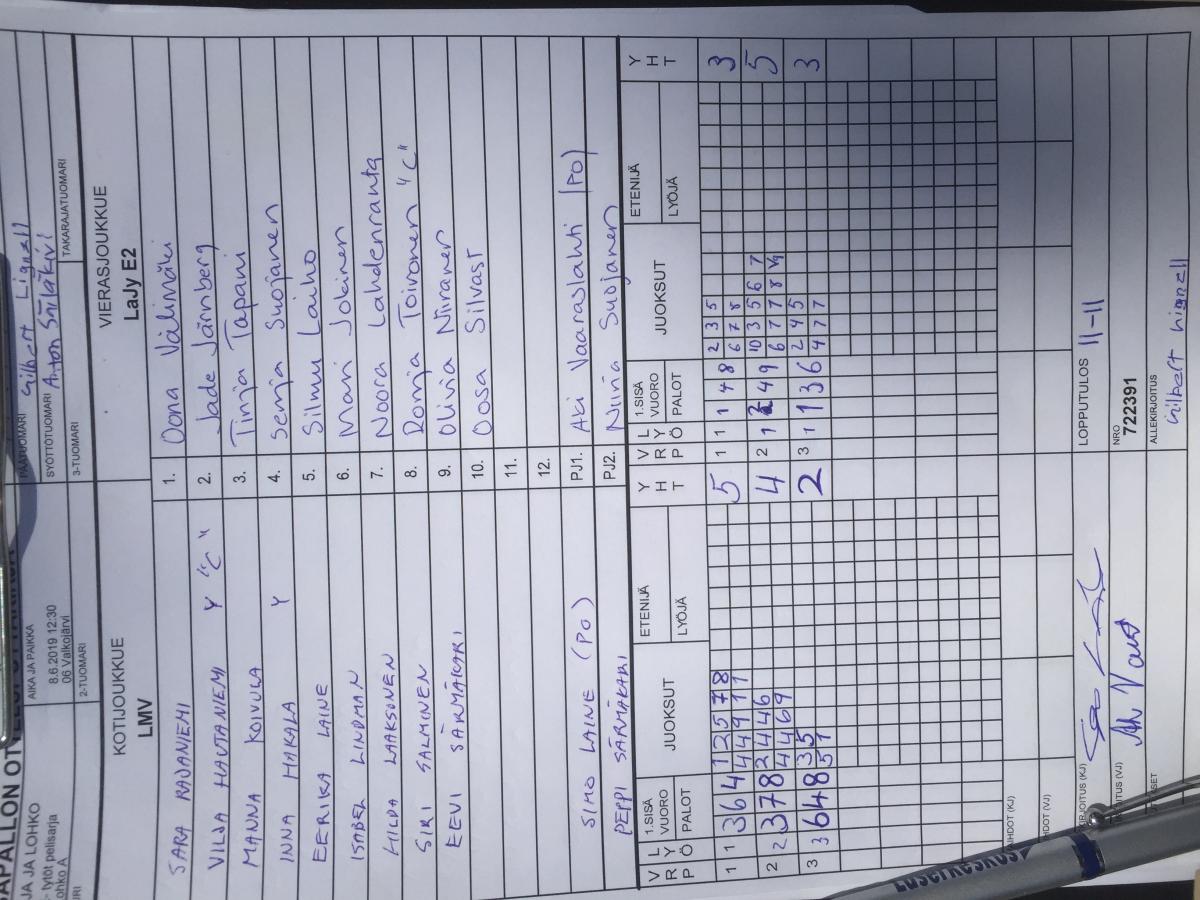 JA JA LOHKO
tytöt pelisarja
AIKA JA PAIKKA
8.6.2019 12:30
06 Valkojärvi
2-TUOMARI
PÄÄTUOMARI Gilbert Lignell
SYÖTTÖTUOMARI Anton Särläkivi
3-TUOMARI
TAKARAJATUOMARI
KOTIJOUKKUE
LMV
VIERASJOUKKUE
LaJy E2
SARA RAJANIEMI 1. Oona Välimäki
VILJA HAUTANIEMI Y "C" 2. Jade Järnberg
MANNA KOIVULA 3. Tinja Tapani
INNA MAKALA Y 4. Senja Suojanen
EERIKA LAINE 5. Silmu Laiho
ISABEL LINDMAN 6. Mari Jokinen
HILDA LAAKSONEN 7. Noora Lahdenranta
SIRI SALMINEN 8. Ronja Toivonen "C"
EEVI SÄRMÄKARI 9. Olivia Niiranen
10. Oosa Silvast
11.
12.
SIMO LAINE (PO) PJ1. Aki Vaaraslahti (PO)
PEPPI SÄRMÄKARI PJ2. Niina Suojanen
VRÖ LYP 1.SISÄ VUORO PALOT JUOKSUT ETENIJÄ LYÖJÄ YHT VRÖ LYP 1.SISÄ VUORO PALOT JUOKSUT ETENIJÄ LYÖJÄ YHT
1 1 3 6 4 1 2 5 7 8 5 1 1 1 4 8 2 3 5 3
4 4 9 1 1 6 7 8
2 2 3 7 8 2 4 4 6 4 2 1 4 9 10 3 5 6 7 5
4 4 6 9 6 7 7 8
3 3 6 4 8 3 5 2 3 1 1 3 6 2 4 5 3
5 1 4 7 7
LOPPUTULOS 11-11
NRO
722391
ALLEKIRJOITUS
Gilbert Lignell
Laserkeskus